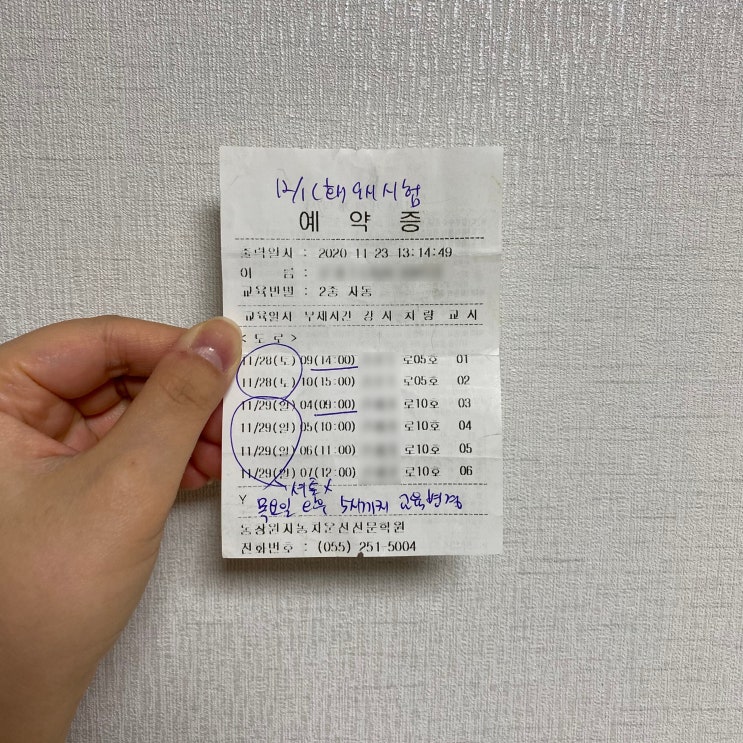 12/1(화) 9시 시험
예 약 증
출력일시 : 2020-11-23 13:14:49
이 름 :
교육반별 : 2종 자동
교육일시 부제시간 강 사 차 량 교 시
<도로>
11/28(토) 09(14:00) 로05호 01
11/28(토) 10(15:00) 로05호 02
11/29(일) 04(09:00) 로10호 03
11/29(일) 05(10:00) 로10호 04
11/29(일) 06(11:00) 로10호 05
11/29(일) 07(12:00) 로10호 06
Y
목요일 오후 5시까지 교육변경
동창원자동차운전전문학원
전화번호 : (055) 251-5004